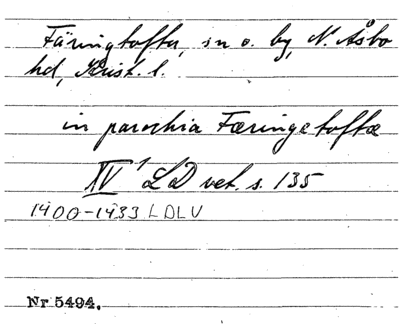 Färingtofta, sn o. by, N. Åsbo
hd, Krist. l.
in parochia Færingetoftæ
XV¹ LD vet. s. 135
1400-1433 LDLV
Nr 5494.